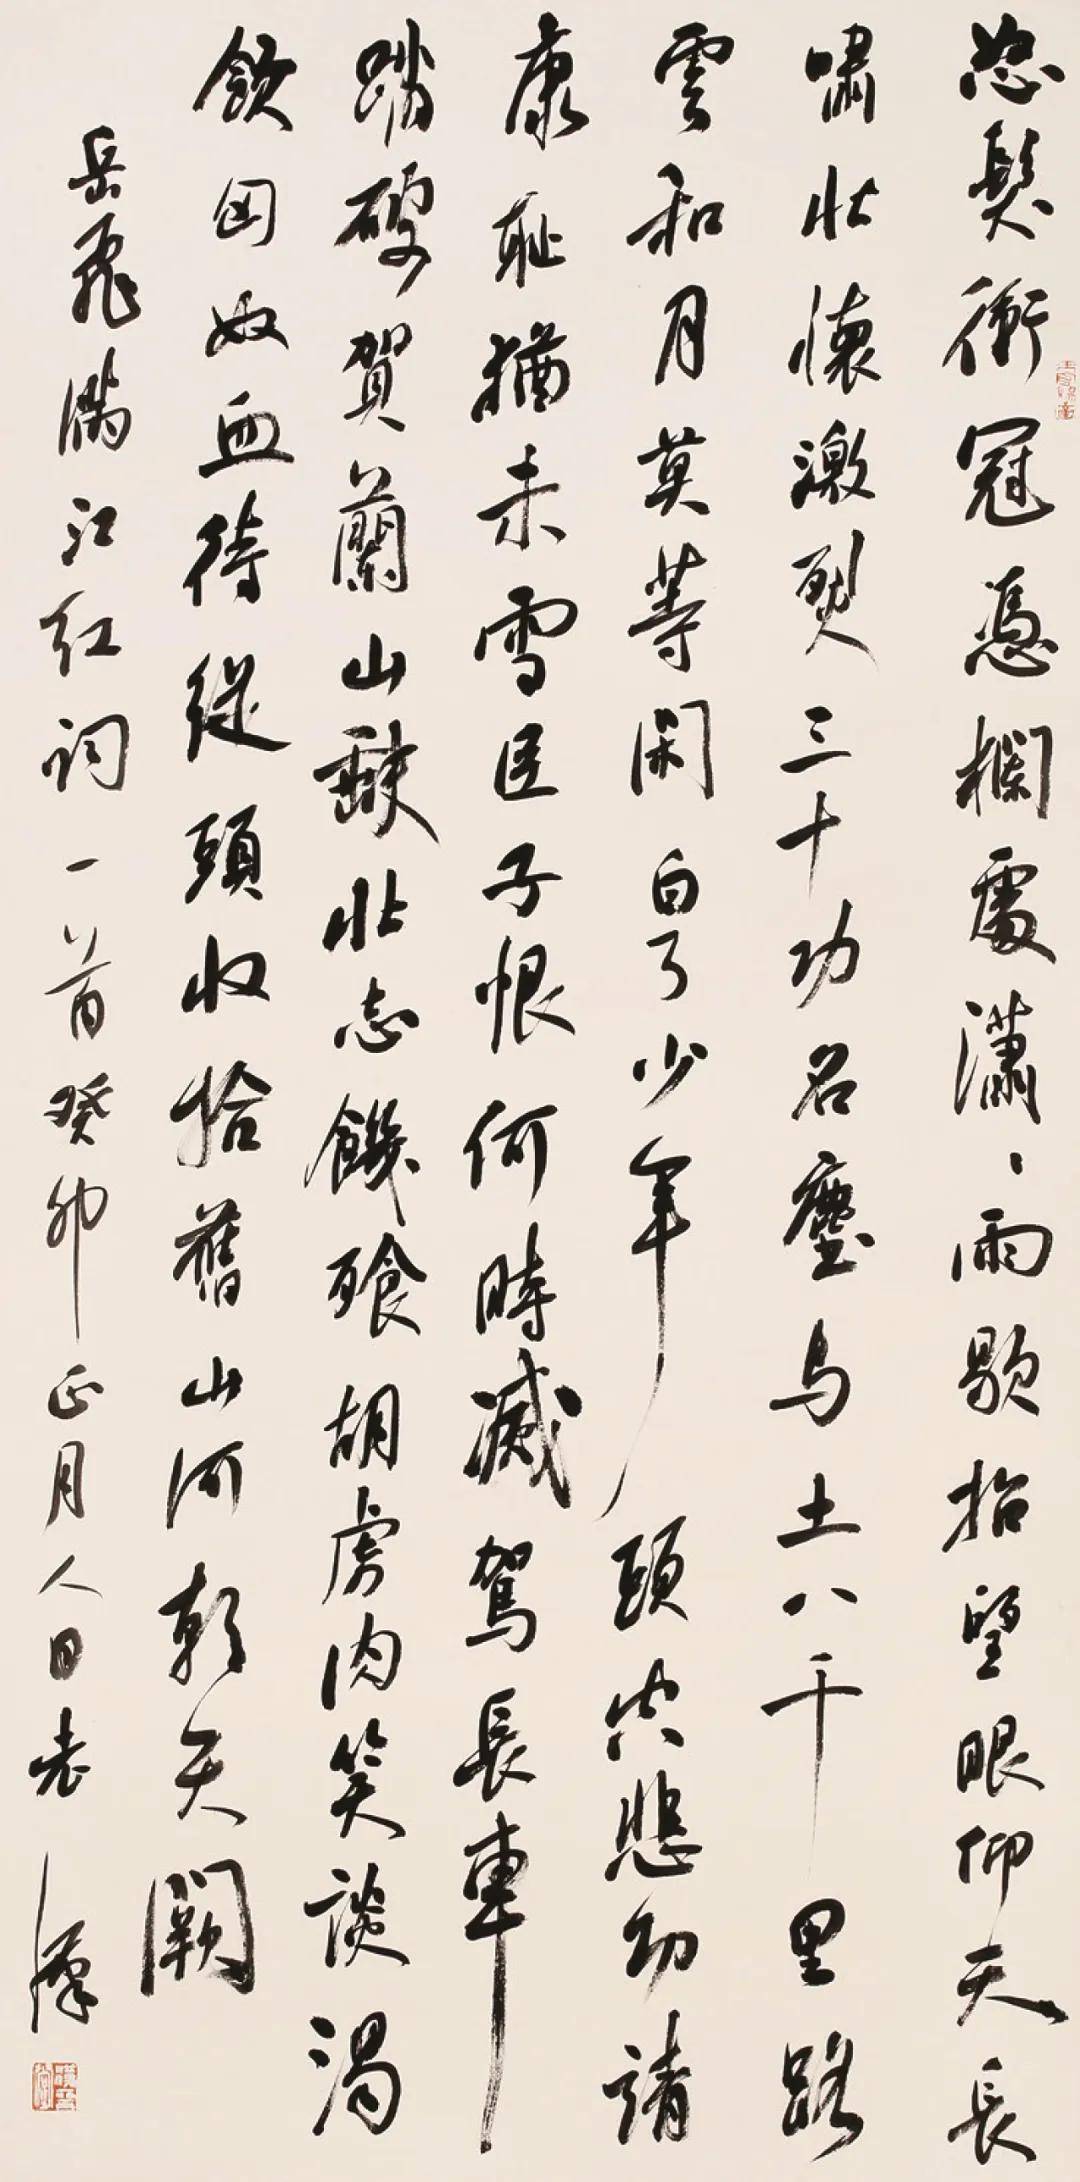 怒髮衝冠憑欄處瀟、雨歇抬望眼仰天長
嘯壯懷激烈三十功名塵与土八千里路
雲和月莫等閑白了少年頭空悲切靖
康恥猶未雪臣子恨何時滅駕長車
踏破賀蘭山缺壯志饑餐胡虜肉笑談渴
飲匈奴血待從頭收拾舊山河朝天闕
岳飛滿江紅詞一首癸卯正月人日老